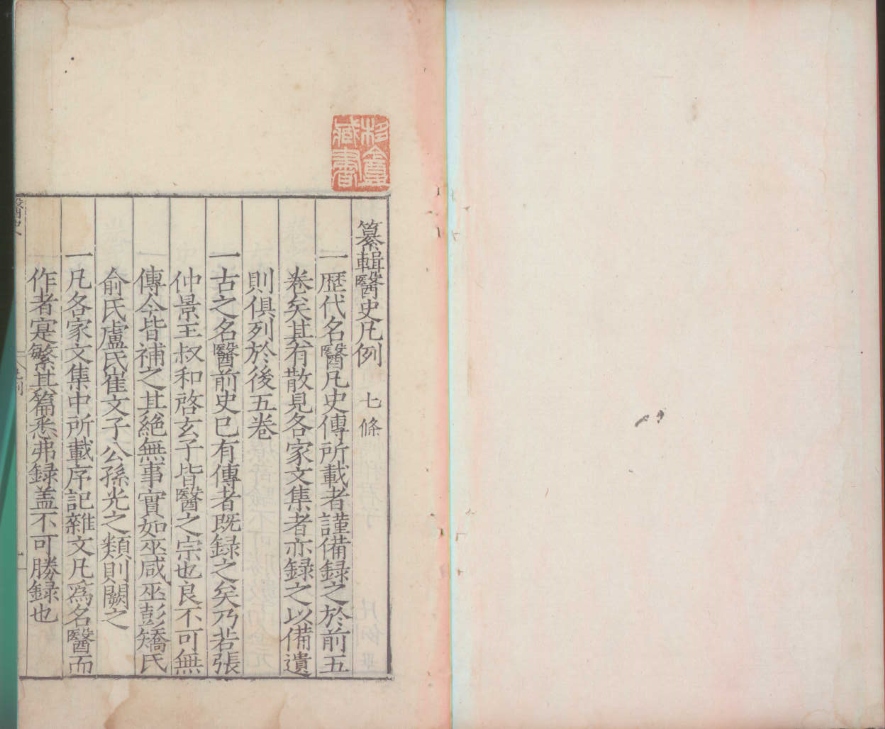 纂輯醫史凡例 七條
一歷代名醫凡史傳所載者謹備録之於前五
卷矣其有散見各家文集者亦録之以備遺
則俱列於後五卷
一古之名醫前史已有傳者既録之矣乃若張
仲景王叔和啓玄子皆醫之宗也良不可無
傳今皆補之其絶無事實如巫咸巫彭矯氏
俞氏盧氏崔文子公孫光之類則闕之
一凡各家文集中所載序記雜文凡爲名醫而
作者寔繁其篇悉弗録盖不可勝録也
醫史
藏書